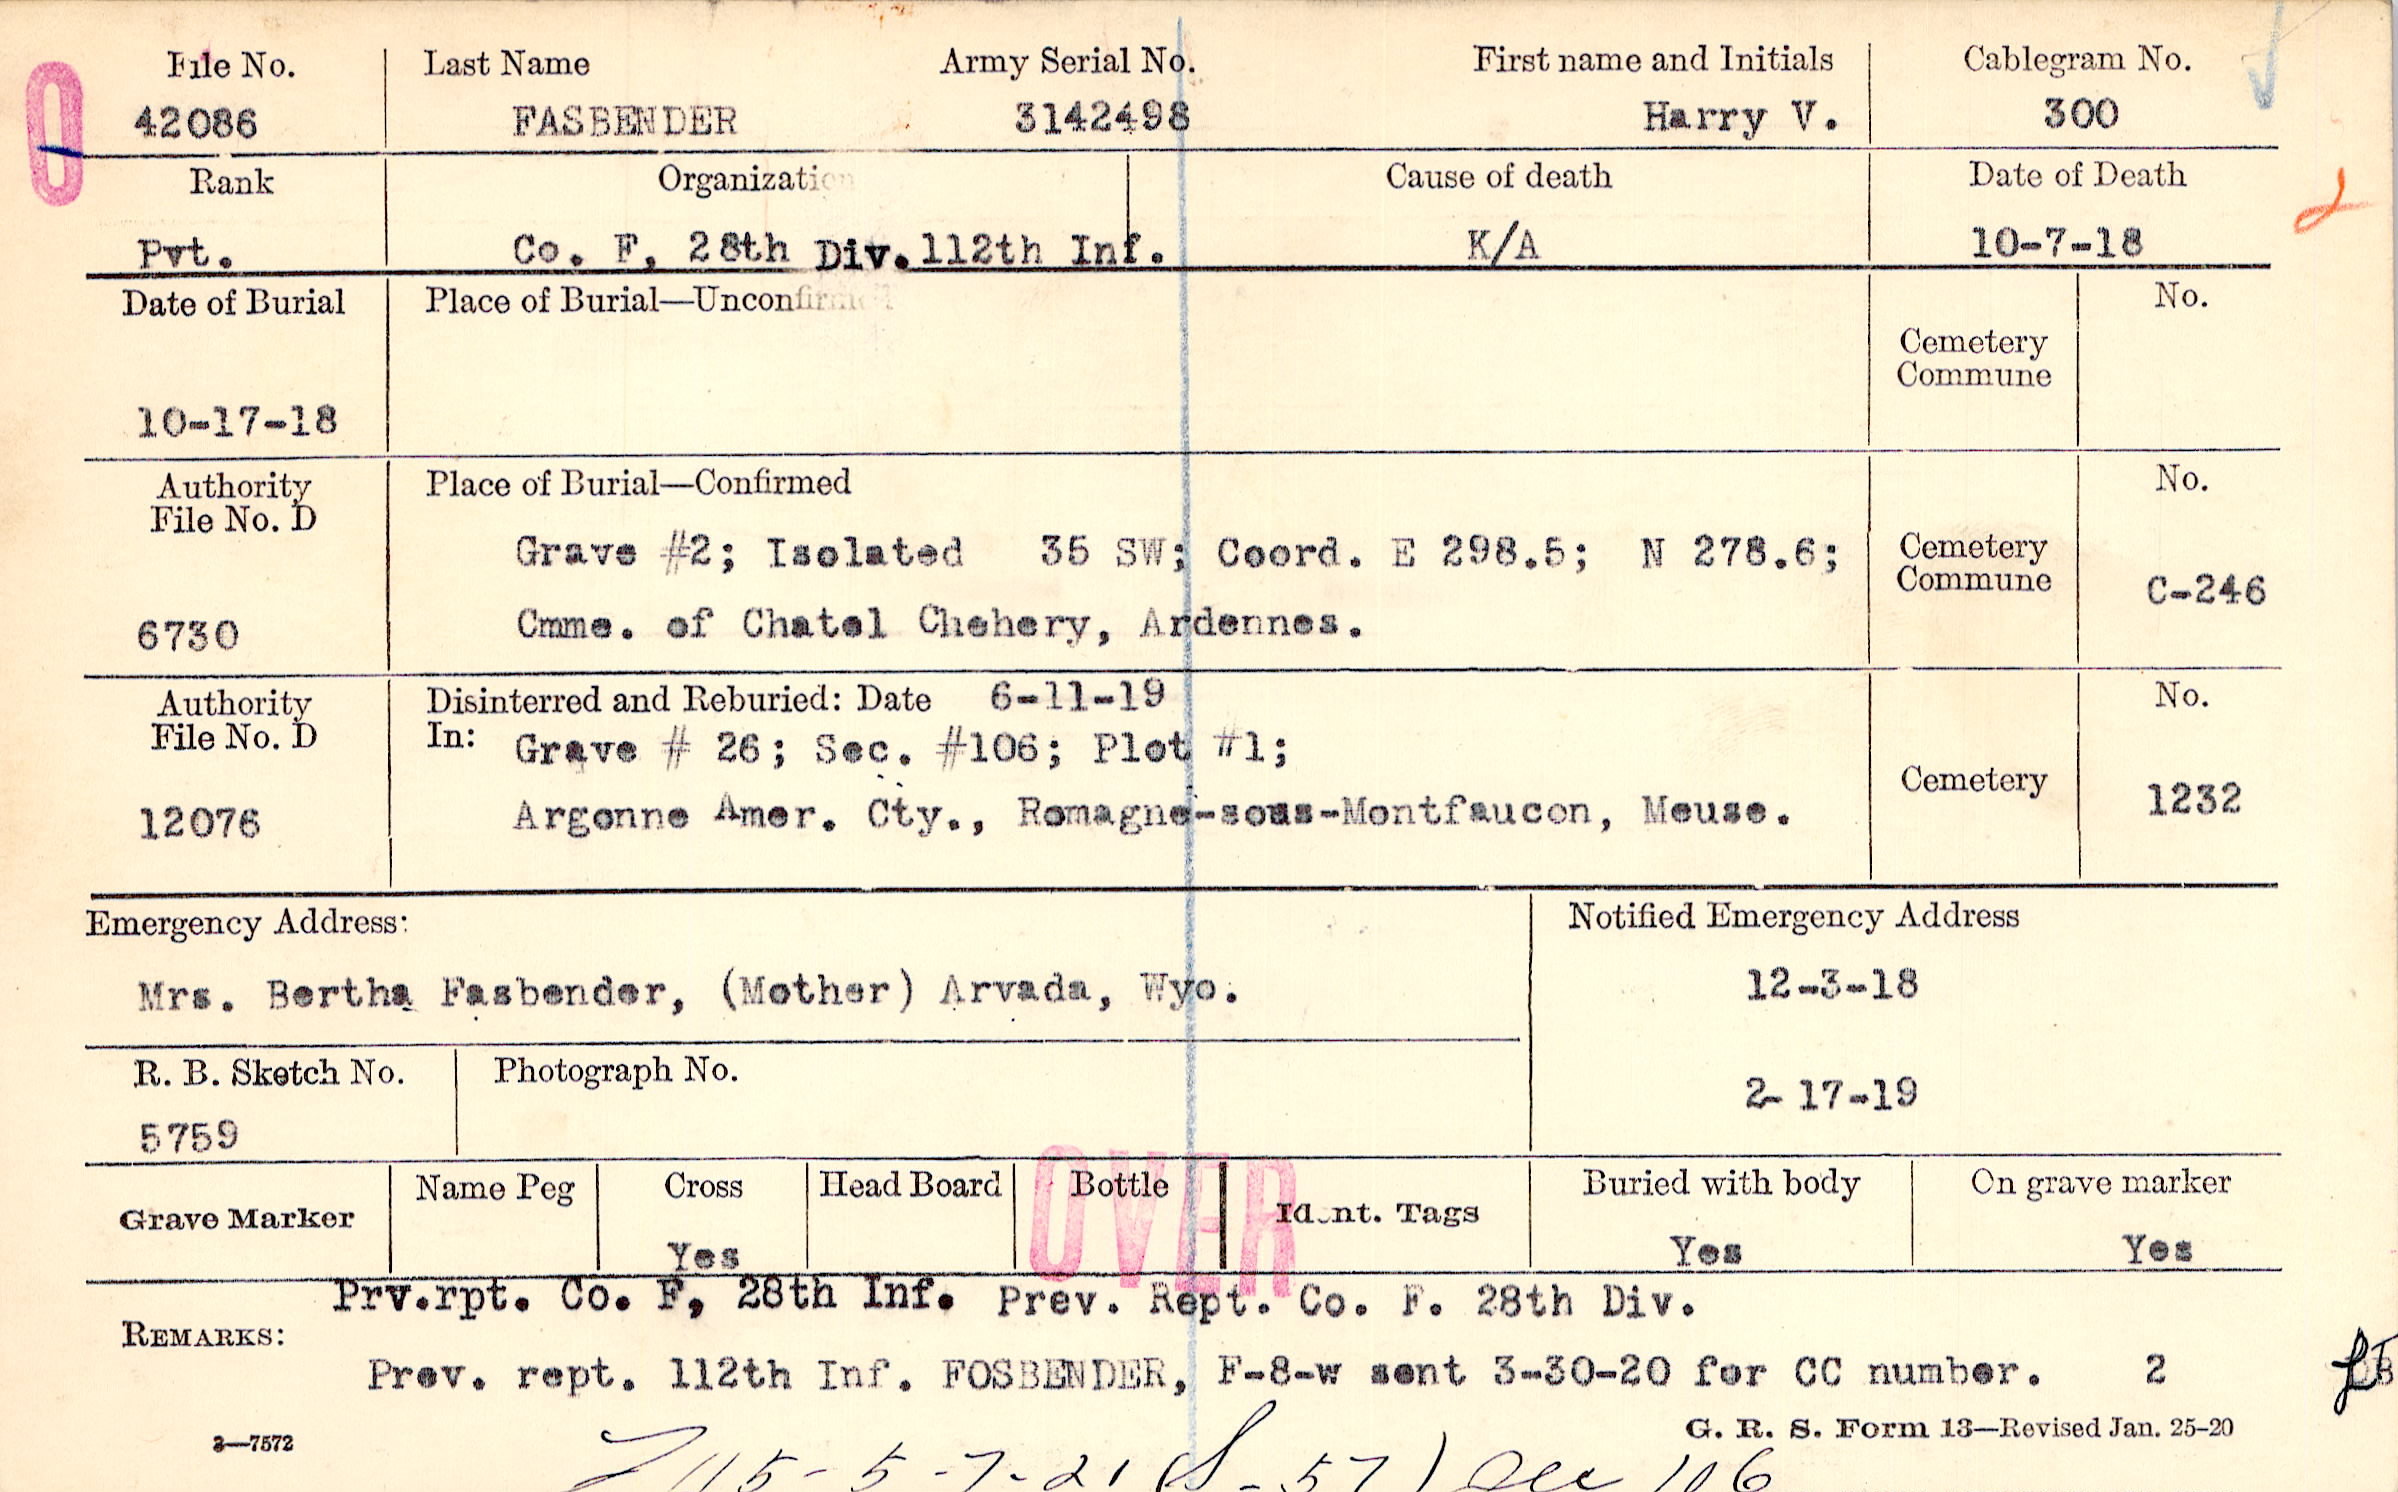 File No. Last Name Army Serial No. First name and Initials Cablegram No.
42086 FASBENDER 3142498 Harry V. 300
Rank Organization Cause of death Date of Death
Pvt. Co. F, 28th Div. 112th Inf. K/A 10-7-18
Date of Burial Place of Burial—Unconfirmed No.
Cemetery
Commune
10-17-18
Authority Place of Burial—Confirmed No.
File No. D
Grave #2; Isolated 35 SW; Coord. E 298.5; N 278.6; Cemetery
Commune C-246
6730 Cmme. of Chatel Chehery, Ardennes.
Authority Disinterred and Reburied: Date 6-11-19 No.
File No. D In: Grave # 26; Sec. #106; Plot #1;
Cemetery
12076 Argonne Amer. Cty., Romagne-sous-Montfaucon, Meuse. 1232
Emergency Address: Notified Emergency Address
Mrs. Bertha Fasbender, (Mother) Arvada, Wyo. 12-3-18
R. B. Sketch No. Photograph No.
2-17-19
5759
OVER
Name Peg Cross Head Board Bottle Buried with body On grave marker
Grave Marker Ident. Tags
Yes Yes Yes
Prv.rpt. Co. F, 28th Inf. Prev. Rept. Co. F. 28th Div.
REMARKS:
Prev. rept. 112th Inf. FOSBENDER, F-8-w sent 3-30-20 for CC number. 2
3—7572 G. R. S. Form 13—Revised Jan. 25-20
115-5-7-21 (S-57) 106